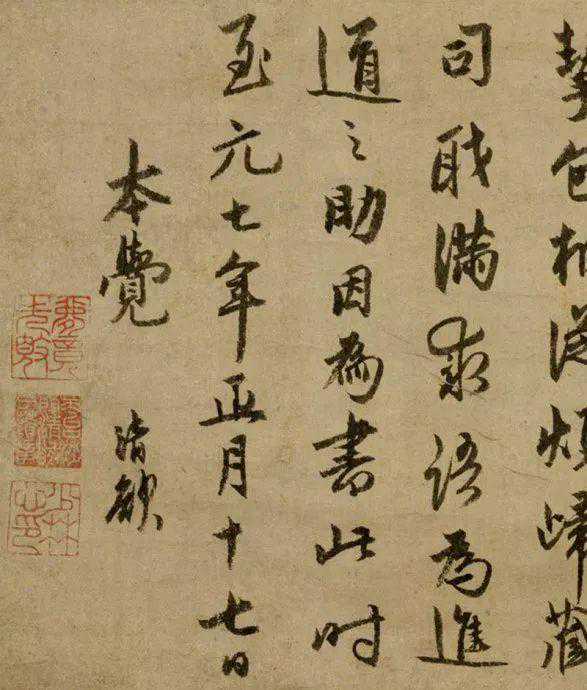 包相
司職滿求語為進
道之助因為書此时
至元七年正月十七日
本覺 清欲